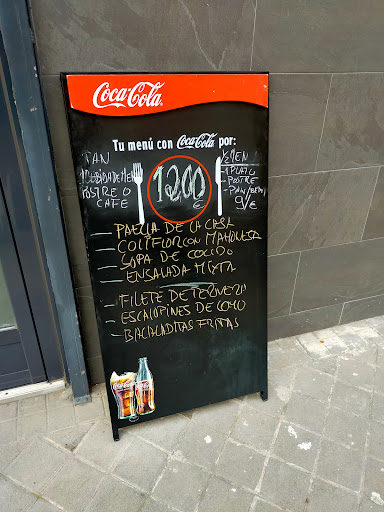 Coca-Cola
Tu menú con Coca-Cola por:
PAN
1 BEBIDA DE MENU
POSTRE O
CAFE
12,00
€
1/2 MEN
1 PLATO
- POSTRE
- PAN/BEBI
9'€
— PAELLA DE LA CASA
— COLIFLOR CON MAHONESA
— SOPA DE COCIDO
— ENSALADA MIXTA
— FILETE DE TERNERA
— ESCALOPINES DE LOMO
— BACALADITAS FRITAS